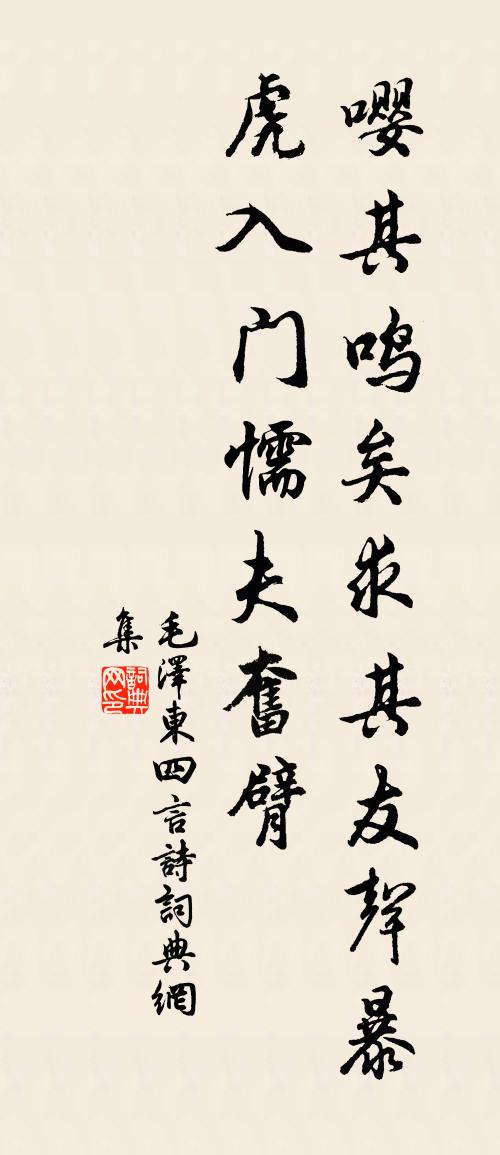 嘤其鳴矣求其友聲暴
虎入门懦夫奮臂
毛澤東四言詩詞典網
集
詞典
网印